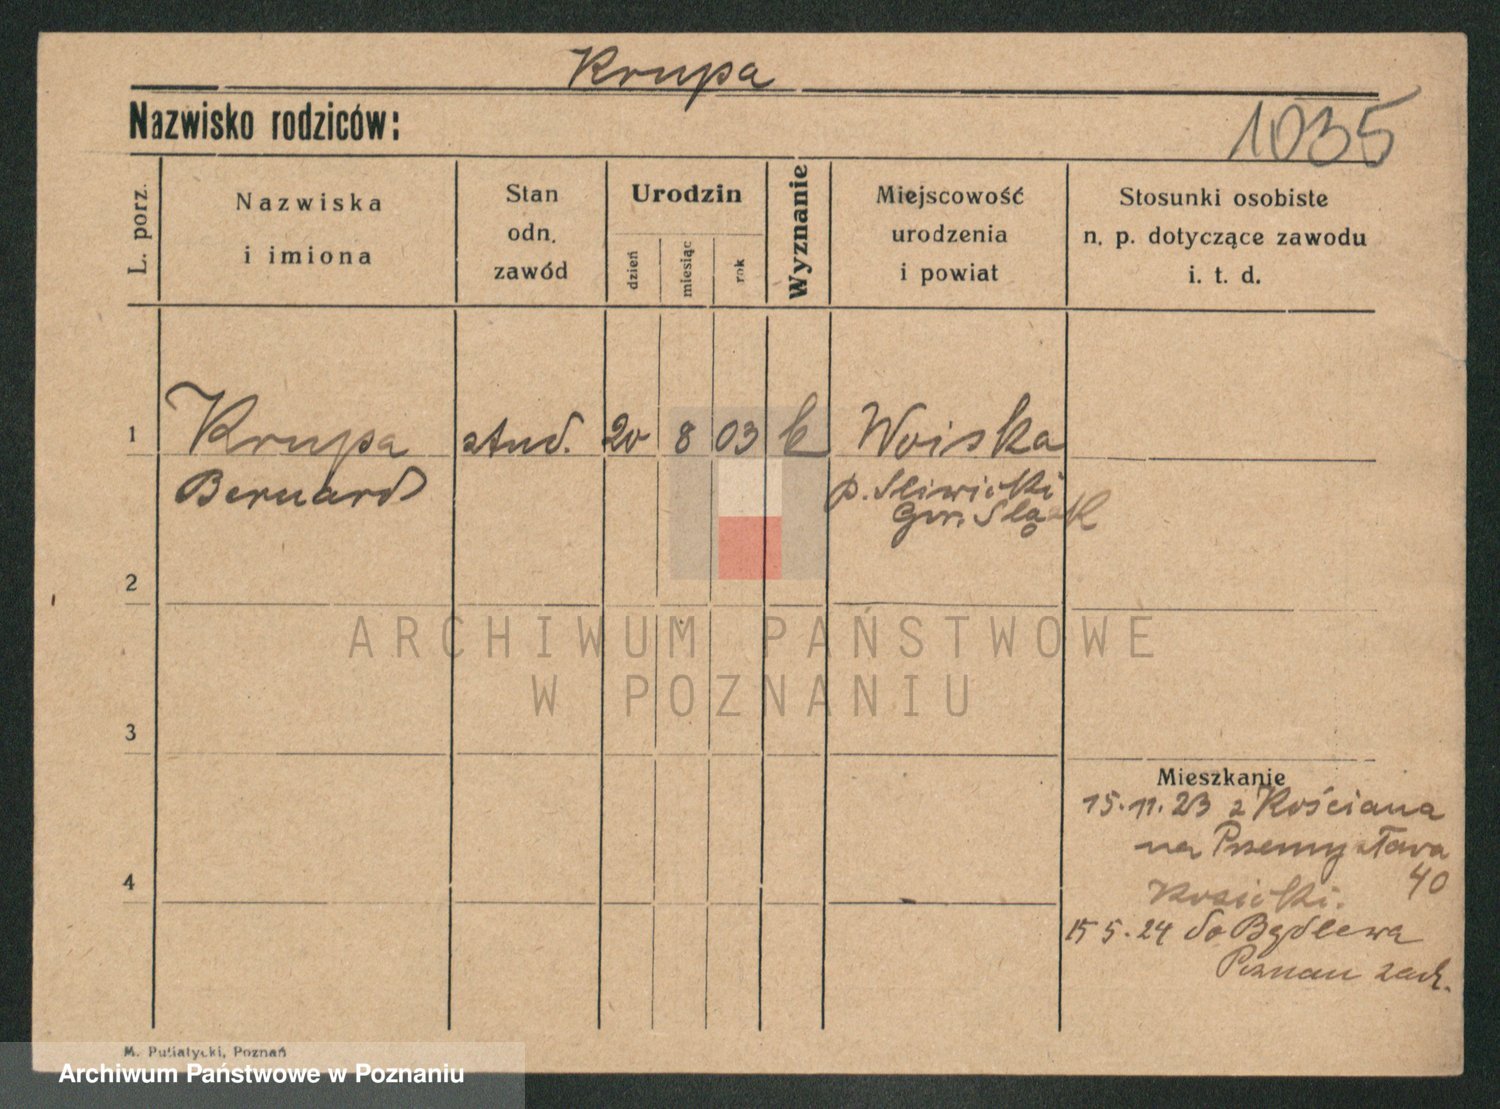 Krupa
Nazwisko rodziców:
1035
L. porz.
Nazwiska
i imiona
Stan
odn.
zawód
Urodzin
dzień
miesiąc
rok
Wyznanie
Miejscowość
urodzenia
i powiat
Stosunki osobiste
n. p. dotyczące zawodu
i. t. d.
1
Krupa
Bernard
stud.
20
8
03
k
Woiska
p. Gliwicki
Gór. Śląsk
2
3
4
ARCHIWUM PAŃSTWOWE
W POZNANIU
Mieszkanie
15.11.23 z Kościana
na Przemysława
40
Kosicki.
15 5.24 do Będlewa
Poznań zach.
M. Putiatycki, Poznań
Archiwum Państwowe w Poznaniu